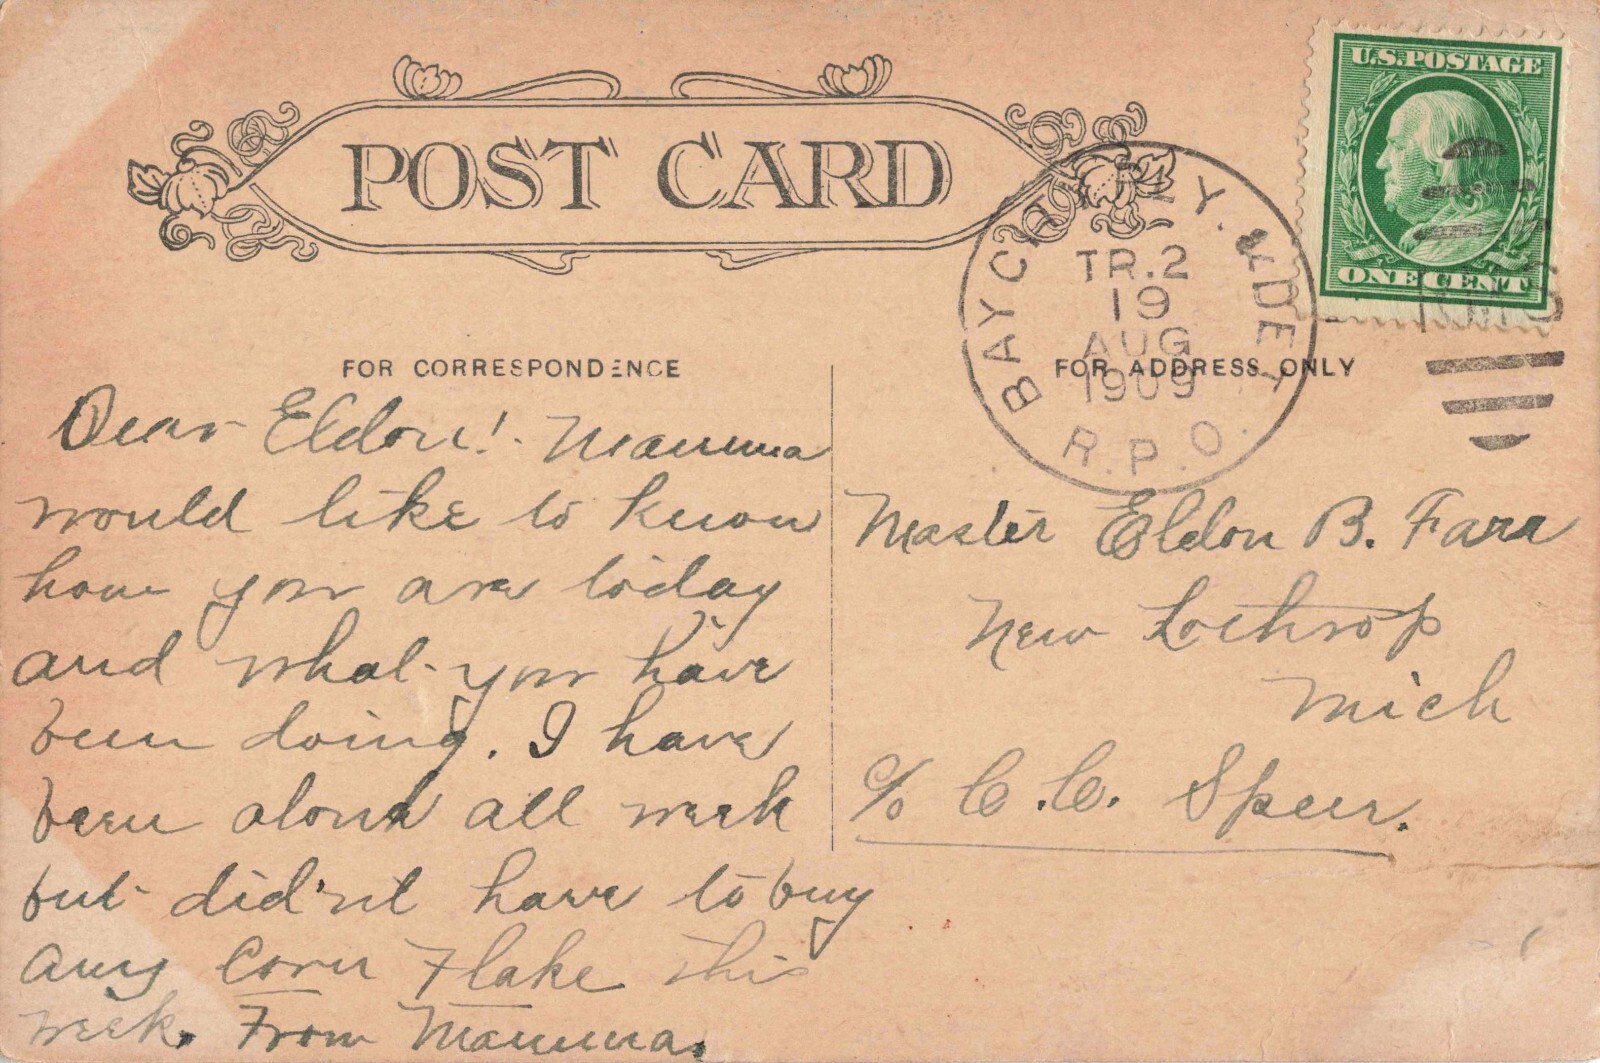 POST CARD
U.S.POSTAGE
ONE CENT
BAY CITY. & DET
TR.2
19
AUG
1909
R.P.O.
FOR CORRESPONDENCE
FOR ADDRESS ONLY
Dear Eldon! Mamma
would like to know
how you are today
and what you have
been doing. I have
been alone all week
but did'nt have to buy
any Corn Flake this
week. From Mamma.
Master Eldon B. Farr
New Lothrop
Mich
c/o C.C. Speer.